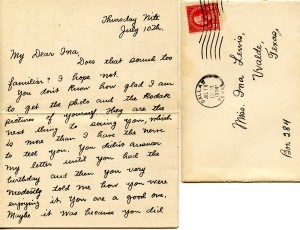 Thursday Nite
July 10th.
My Dear Ina,
Does that sound too
familiar? I hope not.
You don't know how glad I am
to get the photo and the Kodak
pictures of yourself. They are the
next thing to seeing you, which
is more than I have the nerve
to tell you. You didn't answer
my letter until you had the
birthday and then you very
modestly told me how you were
enjoying it. You are a good one.
Maybe it was because you did
DALLAS
JUL 11
Miss. Ina Lewis,
Uvalde,
Texas,
Box 284